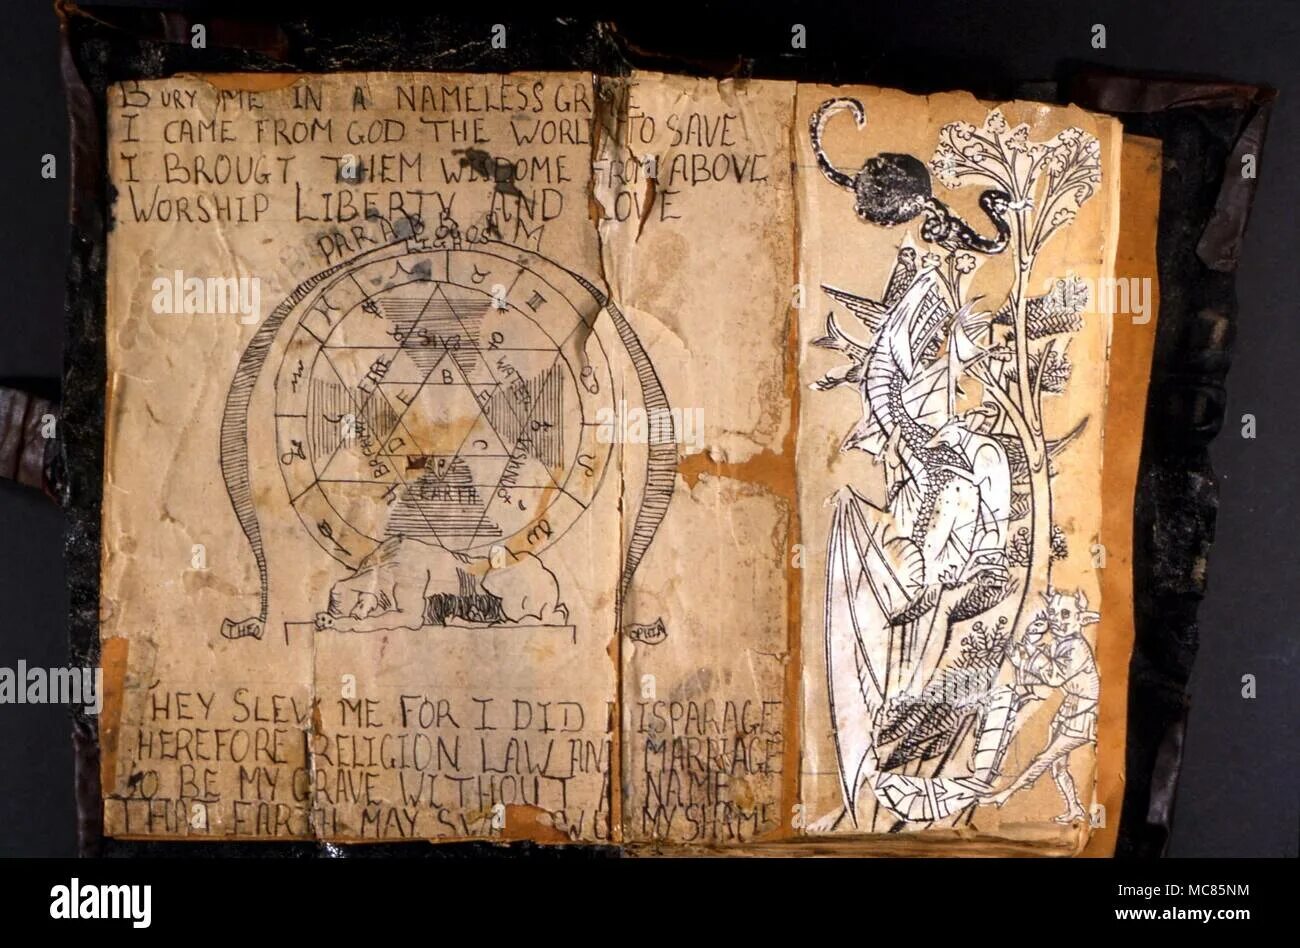 BURY ME IN A NAMELESS GRAVE
I CAME FROM GOD THE WORLD TO SAVE
I BROUGT THEM WISDOME FROM ABOVE
WORSHIP LIBERTY AND LOVE
FIRE
WATER
B
E
D
C
EARTH
THEO
SOPHIA
THEY SLEW ME FOR I DID DISPARAGE
THEREFORE RELIGION LAW AND MARRIAGE
SO BE MY GRAVE WITHOUT A NAME
THAT EARTH MAY SWALLOW MY SHAME
alamy
Image ID: MC85NM
www.alamy.com